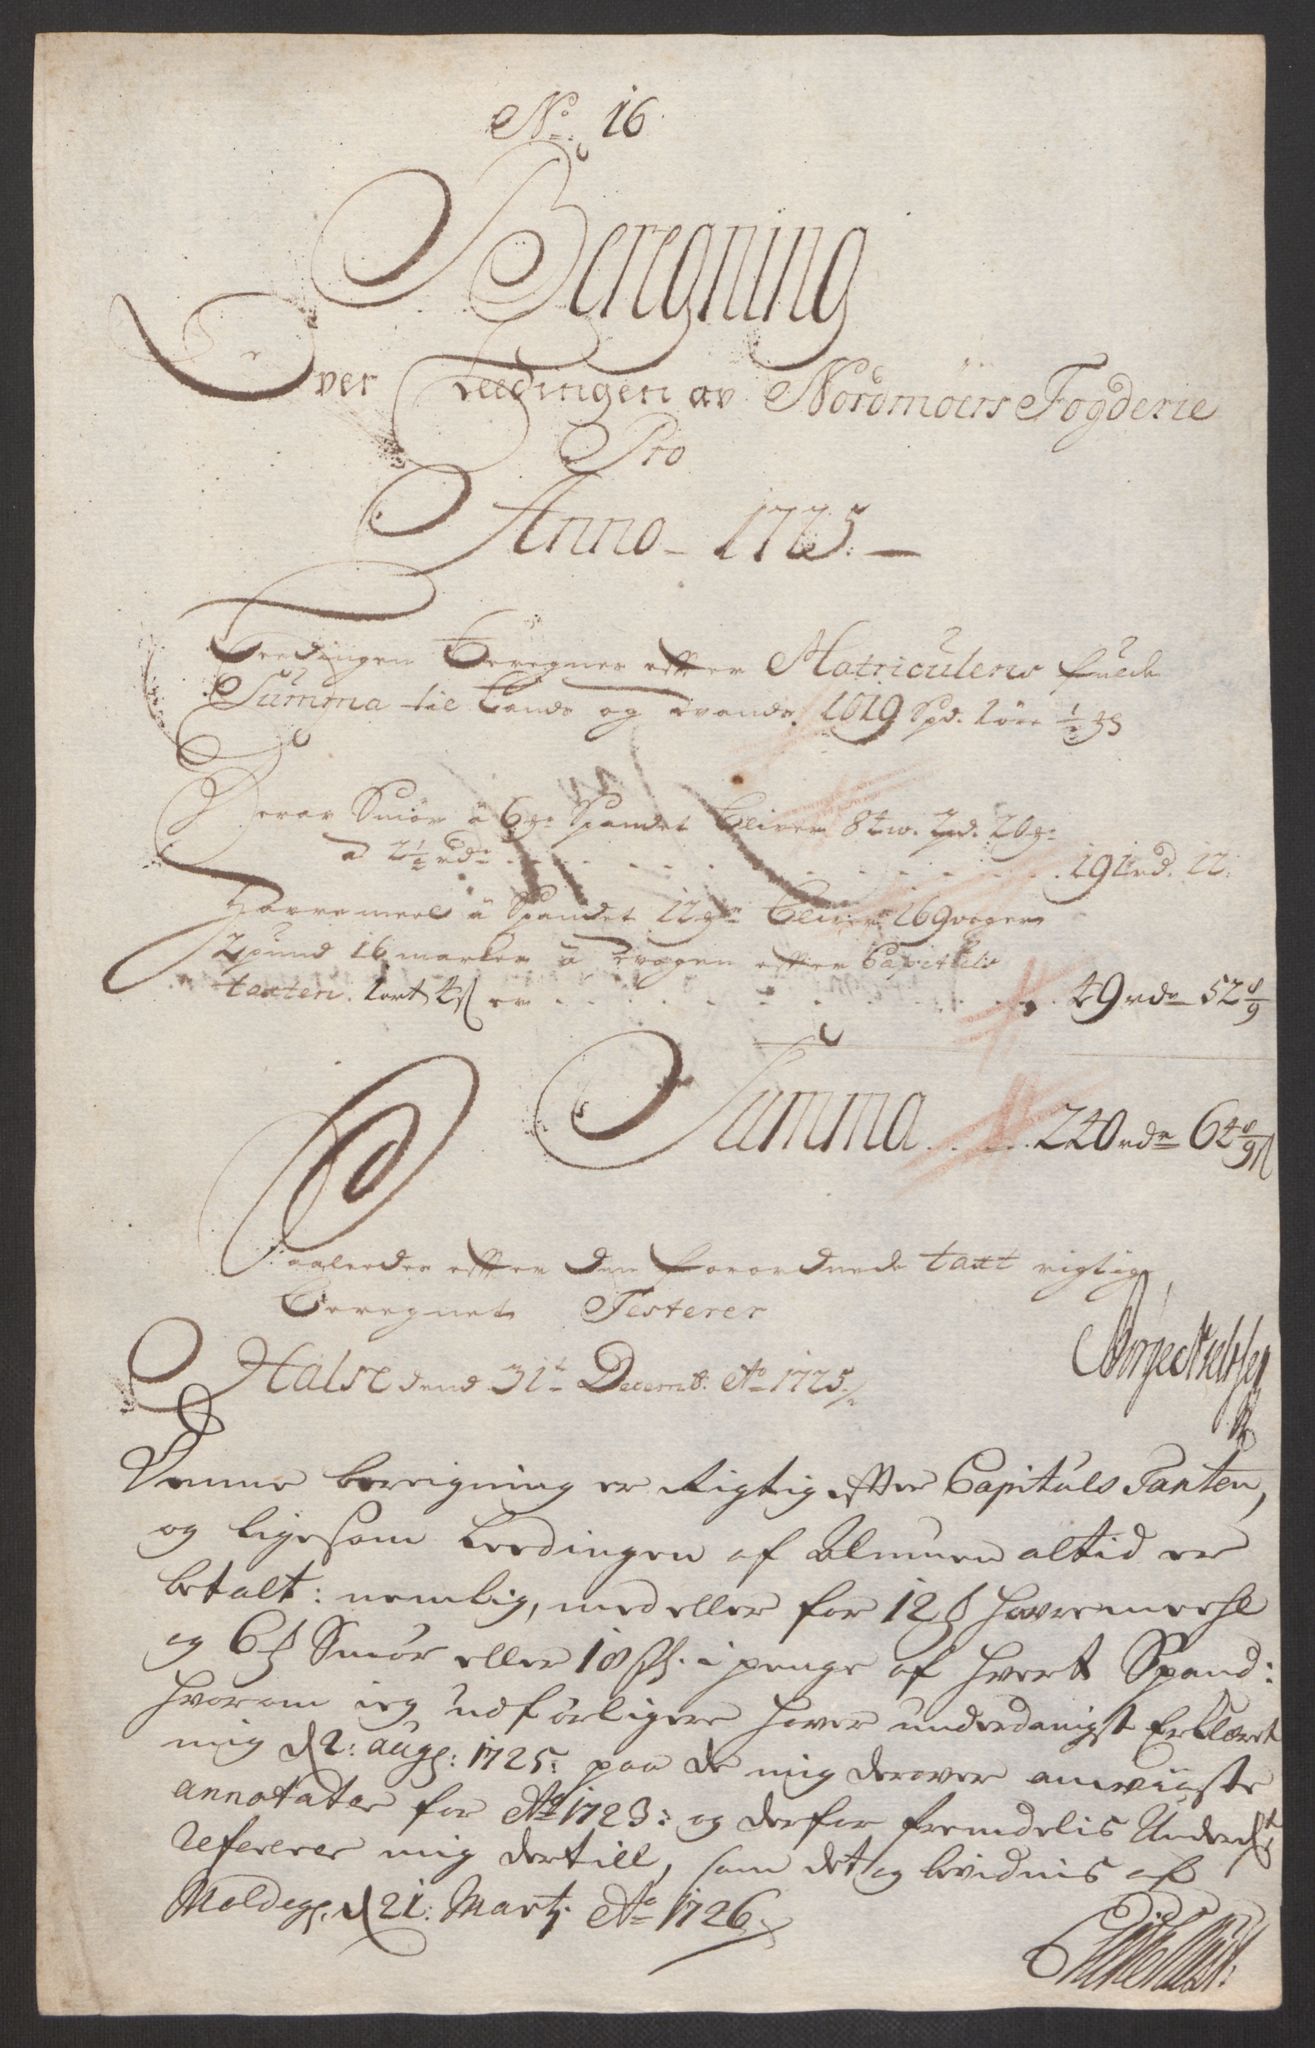 No. 16
Beregning
Over Leedingen av Nordmøers Fogderie
Pro
Anno 1725.
Leedingen Beregnes efter Matriculens fulde
Summa til Lands og Vands 1019 Spd. 1 øre ½
Derav Smør á 6 Spandet bliver 8 2 pd. 20
a 2½ rdr . . . 191 rd. 12:
Havremeel á Spandet 12 bliver 169 voger
2 pund 16 marker á vogen efter Capittels
taxten 1 ort 4 s er . . . 49 rdr 52 8/9
Summa . . . 240 rdr 64 8/9 s
Saaledes efter den forordnede taxt rigtig
Beregnet Testerer
Halse dend 31te Decemb. Ao 1725.
Denne beregning er Rigtig efter Capituls Taxten,
og ligesom Leedingen af Almuen altid er
betalt: nemlig, med eller for 12 Havremeehl
og 6 Smør eller 18 s. i penge af hvert Spand:
hvorom jeg udførligere haver underdanigst Erklæret
mig d 2: aug: 1725: paa de mig derover anviiste
annotater for Ao 1723: og derfor fremdelis Underdst
refererer mig dertill, som det og bevidnis af
Moldeg. d 21: Martj Ao 1726.